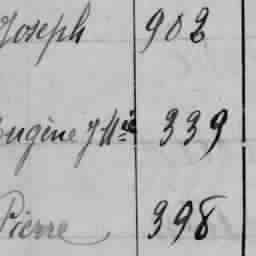 Joseph 902
Eugène J Mie 339
Pierre 398